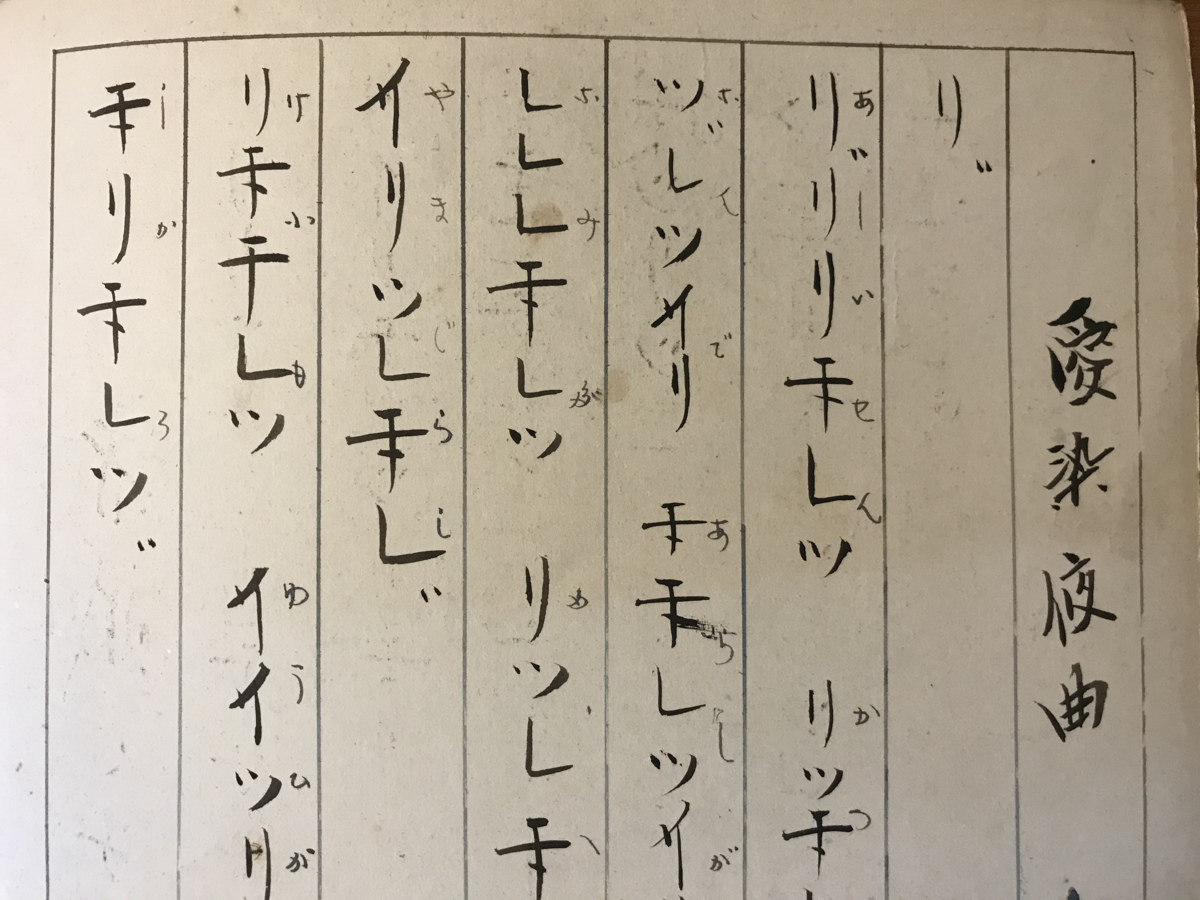 愛染夜曲
リ〃
リ〃リリチレツ　リツチ
あーいセん　かつ
ツ〃レツイリ　チチレツイ
んで　あらしが
レレレチレツ　リツレチ
ふみ　めへ
イリツレチレ〃
やまじらし
リチチレツ　イイツリ
けふも　ゆうひが
チリチレツ〃
ーかろ